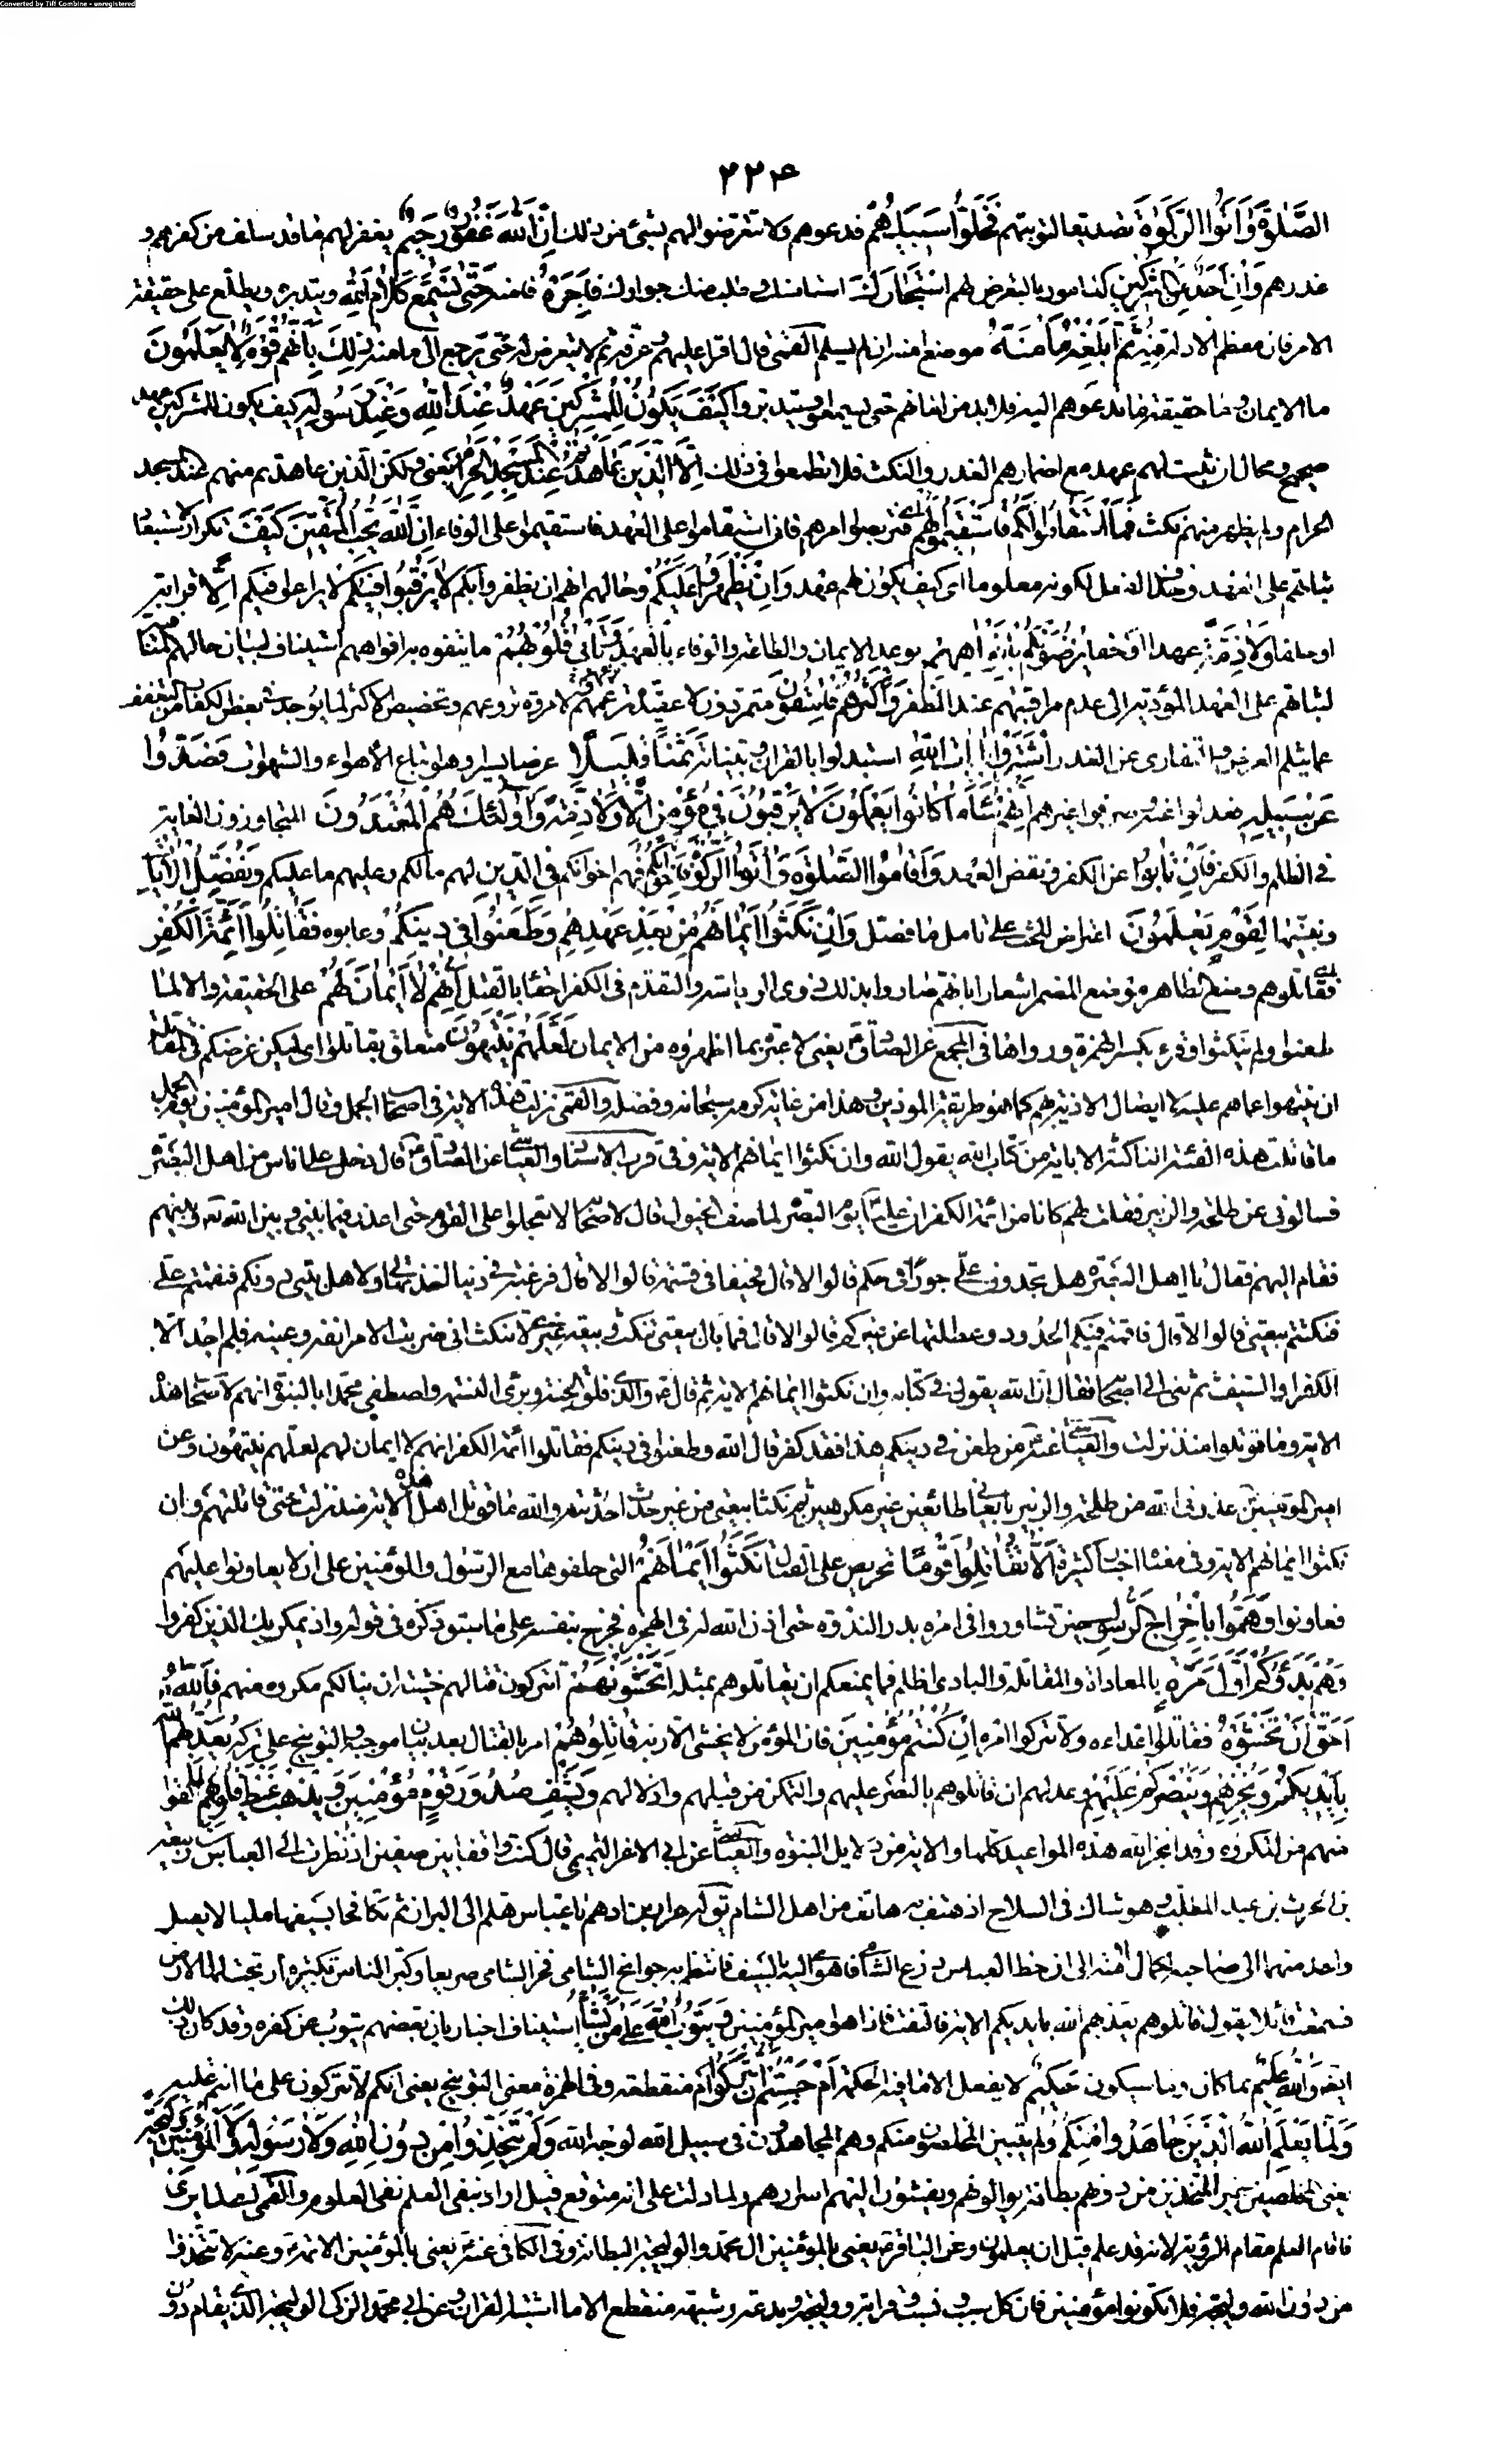 Converted by Tiff Combine - unregistered
٢٢٤
الصَّلٰوةَ وَاٰتَوُا الزَّكٰوةَ تصديقا لتوبتهم فَخَلُّوا سَبِيلَهُمْ فدعوهم ولا تتعرضوا لهم بشئ من ذلك اِنَّ اللهَ غَفُورٌ رَحِيمٌ يغفر لهم ما قد سلف من كفرهم و
غدرهم وَاِنْ اَحَدٌ مِنَ الْمُشْرِكِينَ المأمور بالتعرض لهم اسْتَجَارَكَ استأمنك وطلب منك جوارك فَاَجِرْهُ فامنه حَتّٰى يَسْمَعَ كَلَامَ اللهِ ويتدبره ويطلع على حقيقة
الامر فان معظم الادلة فيه ثُمَّ اَبْلِغْهُ مَأْمَنَهُ موضع امنه ان لم يسلم القمي قال اقرأ عليه وعرفه ثم لا تتعرض له حتى يرجع الى مأمنه ذٰلِكَ بِاَنَّهُمْ قَوْمٌ لَا يَعْلَمُونَ
ما الايمان وما حقيقة ما تدعوهم اليه فلا بد من امانهم حتى يسمعوا ويتدبروا كَيْفَ يَكُونُ لِلْمُشْرِكِينَ عَهْدٌ عِنْدَ اللهِ وَعِنْدَ رَسُولِهِ كيف يكون للمشركين عهد
صحيح ومحال ان يثبت لهم عهد مع اضمارهم الغدر والنكث فلا تطمعوا في ذلك اِلَّا الَّذِينَ عَاهَدْتُمْ عِنْدَ الْمَسْجِدِ الْحَرَامِ يعني ولكن الذين عاهدتم منهم عند المسجد
الحرام ولم يظهر منهم نكث فَمَا اسْتَقَامُوا لَكُمْ فَاسْتَقِيمُوا لَهُمْ اي فتربصوا امرهم فان استقاموا على العهد فاستقيموا على الوفاء اِنَّ اللهَ يُحِبُّ الْمُتَّقِينَ كَيْفَ تكرار لاستبعاد
ثباتهم على العهد وحذف الفعل لكونه معلوما اي كيف يكون لهم عهد وَاِنْ يَظْهَرُوا عَلَيْكُمْ وحالهم انهم ان يظفروا بكم لَا يَرْقُبُوا فِيكُمْ لا يراعوا فيكم اِلًّا قرابة
او حلفا وَلَا ذِمَّةً عهدا او حقا يُرْضُونَكُمْ بِاَفْوَاهِهِمْ بوعد الايمان والطاعة والوفاء بالعهد وَتَأْبٰى قُلُوبُهُمْ ما يتفوه به افواههم استيناف لبيان حالهم المنافية
لثباتهم على العهد المؤدية الى عدم مراقبتهم عند الظفر وَاَكْثَرُهُمْ فَاسِقُونَ متمردون لا عقيدة تزعهم ولا مروة تردعهم وتخصيص الاكثر لما يوجد في بعض الكفار من التعفف
عما يثلم العرض والتفادي عن الغدر اشْتَرَوْا بِاٰيَاتِ اللهِ استبدلوا بالقران وبيناته ثَمَنًا قَلِيلًا عرضا يسيرا وهو اتباع الأهواء والشهوات فَصَدُّوا
عَنْ سَبِيلِهِ فعدلوا عنه وصرفوا غيرهم اِنَّهُمْ سَاءَ مَا كَانُوا يَعْمَلُونَ لَا يَرْقُبُونَ فِي مُؤْمِنٍ اِلًّا وَلَا ذِمَّةً وَاُولٰئِكَ هُمُ الْمُعْتَدُونَ المتجاوزون الغاية
في الظلم والكفر فَاِنْ تَابُوا عن الكفر ونقض العهد وَاَقَامُوا الصَّلٰوةَ وَاٰتَوُا الزَّكٰوةَ فَاِخْوَانُكُمْ فهم اخوانكم فِي الدِّينِ لهم مالكم وعليهم ما عليكم وَنُفَصِّلُ الْاٰيَاتِ
ونبينها لِقَوْمٍ يَعْلَمُونَ اعتراض للحث على تامل ما فصل وَاِنْ نَكَثُوا اَيْمَانَهُمْ مِنْ بَعْدِ عَهْدِهِمْ وَطَعَنُوا فِي دِينِكُمْ وعابوه فَقَاتِلُوا اَئِمَّةَ الْكُفْرِ
اي فقاتلوهم وضع الظاهر موضع المضمر اشعارا بانهم صاروا بذلك ذوي الرياسة والتقدم في الكفر احقاء بالقتل اِنَّهُمْ لَا اَيْمَانَ لَهُمْ على الحقيقة والا لما
طعنوا ولم ينكثوا وقرئ بكسر الهمزة ورواها في المجمع عن الصادق يعني لا عبرة بما اظهروه من الايمان لَعَلَّهُمْ يَنْتَهُونَ متعلق بقاتلوا اي ليكن غرضكم في المقاتلة
ان ينتهوا عما هم عليه لا ايصال الاذية بهم كما هو طريقة الموذين وهذا من غاية كرمه سبحانه وفضله والقمي نزلت هذه الاية في اصحاب الجمل وقال امير المؤمنين يوم الجمل
ما قاتلت هذه الفئة الناكثة الا باية من كتاب الله يقول الله وان نكثوا ايمانهم الاية وفي قرب الاسناد والعياشي عن الصادق قال دخل علي اناس من اهل البصرة
فسألوني عن طلحة والزبير فقلت لهم كانا من ائمة الكفر ان عليا يوم البصرة لما صف الخيول قال لاصحابه لا تعجلوا على القوم حتى اعذر فيما بيني وبين الله تعالى وبينهم
فقام اليهم فقال يا اهل البصرة هل تجدون علي جورا في حكم قالوا لا قال فحيفا في قسمة قالوا لا قال فرغبة في دنيا اخذتها لي ولاهل بيتي دونكم فنقمتم علي
فنكثتم بيعتي قالوا لا قال فاقمت فيكم الحدود وعطلتها عن غيركم قالوا لا قال فما بال بيعتي تنكث وبيعة غيري لا تنكث اني ضربت الامر انفه وعينه فلم اجد الا
الكفر او السيف ثم ثنى الى اصحابه فقال ان الله يقول في كتابه وان نكثوا ايمانهم الاية ثم قال والذي فلق الحبة وبرئ النسمة واصطفى محمدا بالنبوة انهم لاصحاب هذه
الاية وما قوتلوا منذ نزلت والعياشي عنه من طعن في دينكم هذا فقد كفر قال الله وطعنوا في دينكم فقاتلوا ائمة الكفر انهم لا ايمان لهم لعلهم ينتهون وعن
امير المؤمنين عذرني الله من طلحة والزبير بايعاني طائعين غير مكرهين ثم نكثا بيعتي من غير حدث احدثته والله ما قوتل اهل هذه الاية منذ نزلت حتى قاتلتهم وان
نكثوا ايمانهم الاية وفي معناه اخبار كثيرة اَلَا تُقَاتِلُونَ قَوْمًا تحريص على القتال نَكَثُوا اَيْمَانَهُمْ التي حلفوها مع الرسول والمؤمنين على ان لا يعاونوا عليهم
فعاونوا وَهَمُّوا بِاِخْرَاجِ الرَّسُولِ حين تشاوروا في امره بدار الندوة حتى اذن الله له في الهجرة فخرج بنفسه على ما سبق ذكره في قوله واذ يمكر بك الذين كفروا
وَهُمْ بَدَؤُكُمْ اَوَّلَ مَرَّةٍ بالمعاداة والمقاتلة والبادي اظلم فما يمنعكم ان تقاتلوهم بمثله اَتَخْشَوْنَهُمْ اتتركون قتالهم خشية ان ينالكم مكروه منهم فَاللهُ
اَحَقُّ اَنْ تَخْشَوْهُ فقاتلوا اعداءه ولا تتركوا امره اِنْ كُنْتُمْ مُؤْمِنِينَ فان المؤمن لا يخشى الا ربه قَاتِلُوهُمْ امر بالقتال بعد بيان موجبه والتوبيخ على تركه يُعَذِّبْهُمُ اللهُ
بِاَيْدِيكُمْ وَيُخْزِهِمْ وَيَنْصُرْكُمْ عَلَيْهِمْ وعد لهم ان قاتلوهم بالنصر عليهم والتمكن من قتلهم واذلالهم وَيَشْفِ صُدُورَ قَوْمٍ مُؤْمِنِينَ وَيُذْهِبْ غَيْظَ قُلُوبِهِمْ لما لقوا
منهم من المكروه وقد انجز الله هذه المواعيد كلها والاية من دلايل النبوة والعياشي عن ابي الاغر التميمي قال كنت واقفا بين صفين اذ نظرت الى العباس بن ربيعة
بن الحرث بن عبد المطلب وهو شاك في السلاح اذ هتف به هاتف من اهل الشام يقال له عرار بن ادهم يا عباس هلم الى البراز ثم تكافحا بسيفهما مليا لا يصل
واحد منهما الى صاحبه لكمال لامته الى ان لحظ العباس درع الشامي فاهوى اليه بالسيف فانتظم به جوانح الشامي فخر الشامي صريعا وكبر الناس تكبيرة ارتجت لها الارض
فسمعت قائلا يقول قاتلوهم يعذبهم الله بايديكم الاية فالتفت فاذا هو امير المؤمنين وَيَتُوبُ اللهُ عَلٰى مَنْ يَشَاءُ استيناف اخبار بان بعضهم يتوب عن كفره وقد كان ذلك
ايضا وَاللهُ عَلِيمٌ بما كان وبما سيكون حَكِيمٌ لا يفعل الا ما فيه الحكمة اَمْ حَسِبْتُمْ اَنْ تُتْرَكُوا ام منقطعة وفي الهمزة معنى التوبيخ يعني انكم لا تتركون على ما انتم عليه
وَلَمَّا يَعْلَمِ اللهُ الَّذِينَ جَاهَدُوا مِنْكُمْ ولم يتبين المخلصون منكم وهم المجاهدون في سبيل الله لوجه الله وَلَمْ يَتَّخِذُوا مِنْ دُونِ اللهِ وَلَا رَسُولِهِ وَلَا الْمُؤْمِنِينَ وَلِيجَةً
يعني المخلصين غير المتخذين من دونهم بطانة يوالونهم ويفشون اليهم اسرارهم ولما دلت على انه متوقع قيل اراد بنفي العلم نفي المعلوم والقمي اي لما ير
فاقام العلم مقام الرؤية لانه قد علم قبل ان يعلموا وعن الباقر يعني بالمؤمنين ال محمد والوليجة البطانة وفي الكافي عنه يعني بالمؤمنين الائمة وعنه لا تتخذوا
من دون الله وليجة فلا تكونوا مؤمنين فان كل سبب ونسب وقرابة ووليجة وبدعة وشبهة منقطع الا ما اثبته القران وعن ابي محمد الزكي الوليجة الذي يقام دون